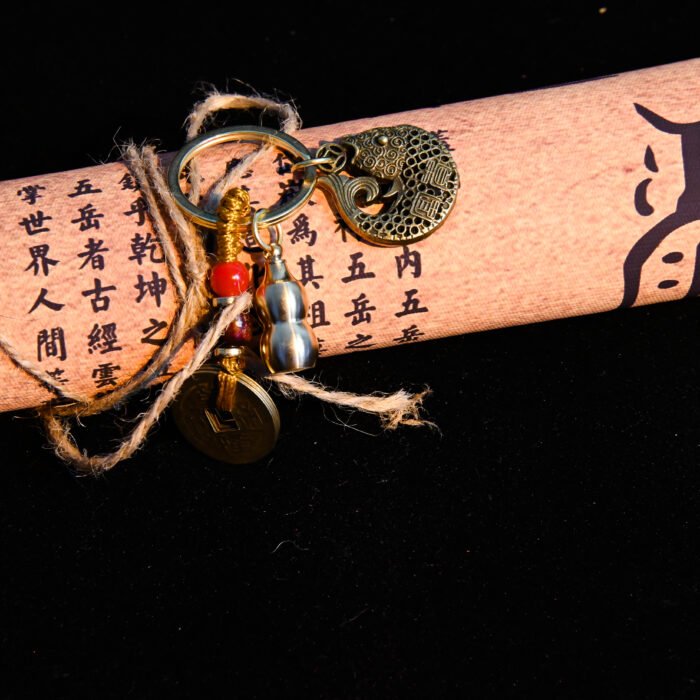 内五岳
五岳之
為其祖
鎮乎乾坤之
五岳者古經雲
掌世界人間